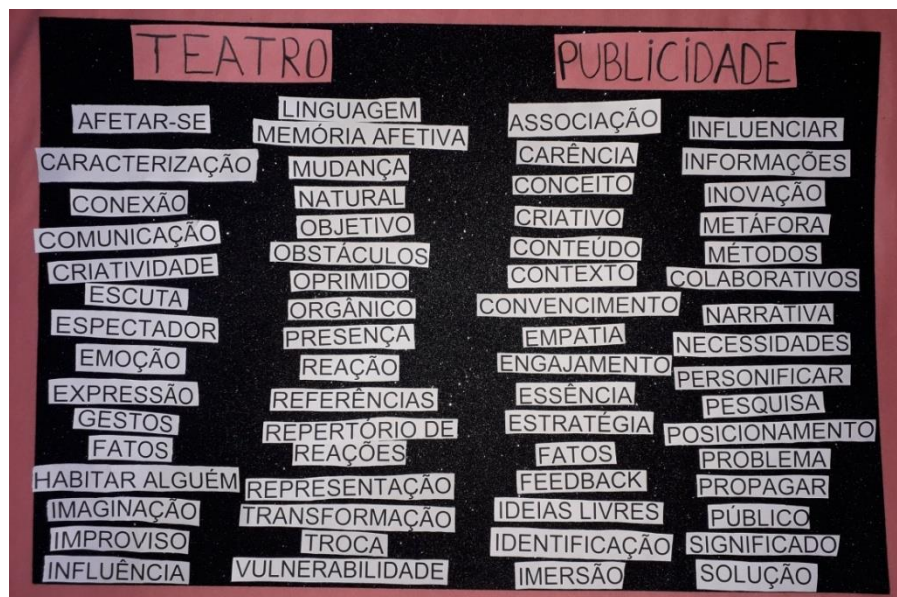 TEATRO
AFETAR-SE
CARACTERIZAÇÃO
CONEXÃO
COMUNICAÇÃO
CRIATIVIDADE
ESCUTA
ESPECTADOR
EMOÇÃO
EXPRESSÃO
GESTOS
FATOS
HABITAR ALGUÉM
IMAGINAÇÃO
IMPROVISO
INFLUÊNCIA
LINGUAGEM
MEMÓRIA AFETIVA
MUDANÇA
NATURAL
OBJETIVO
OBSTÁCULOS
OPRIMIDO
ORGÂNICO
PRESENÇA
REAÇÃO
REFERÊNCIAS
REPERTÓRIO DE
REAÇÕES
REPRESENTAÇÃO
TRANSFORMAÇÃO
TROCA
VULNERABILIDADE
PUBLiCiDADE
ASSOCIAÇÃO
CARÊNCIA
CONCEITO
CRIATIVO
CONTEÚDO
CONTEXTO
CONVENCIMENTO
EMPATIA
ENGAJAMENTO
ESSÊNCIA
ESTRATÉGIA
FATOS
FEEDBACK
IDEIAS LIVRES
IDENTIFICAÇÃO
IMERSÃO
INFLUENCIAR
INFORMAÇÕES
INOVAÇÃO
METÁFORA
MÉTODOS
COLABORATIVOS
NARRATIVA
NECESSIDADES
PERSONIFICAR
PESQUISA
POSICIONAMENTO
PROBLEMA
PROPAGAR
PÚBLICO
SIGNIFICADO
SOLUÇÃO